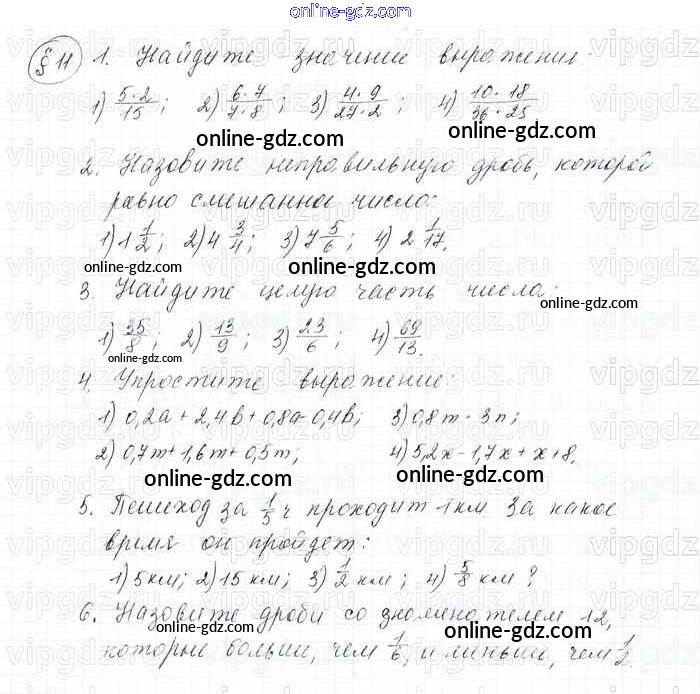 online-gdz.com
§ 11 1. Найдите значение выражения:
1) 5·2/15; 2) 6·7/7·8; 3) 4·9/27·2; 4) 10·18/36·25
online-gdz.com online-gdz.com
2. Назовите неправильную дробь, которой
равно смешанное число:
1) 1 1/2; 2) 4 3/4; 3) 7 5/6; 4) 2 1/17.
online-gdz.com online-gdz.com
3. Найдите целую часть числа:
online-gdz.com
1) 35/8; 2) 13/9; 3) 23/6; 4) 69/13.
online-gdz.com online-gdz.com
4. Упростите выражение:
1) 0,2a + 2,4b + 0,8a - 0,4b; 3) 0,8m · 3n;
2) 0,7m + 1,6m + 0,5m; 4) 5,2x - 1,7x + x + 8.
online-gdz.com online-gdz.com
5. Пешеход за 1/5 ч проходит 1 км. За какое
время он пройдет:
online-gdz.com online-gdz.com
1) 5 км; 2) 15 км; 3) 1/2 км; 4) 5/8 км?
6. Назовите дроби со знаменателем 12,
online-gdz.com online-gdz.com
которые больше, чем 1/6, и меньше, чем 1/2.
online-gdz.com